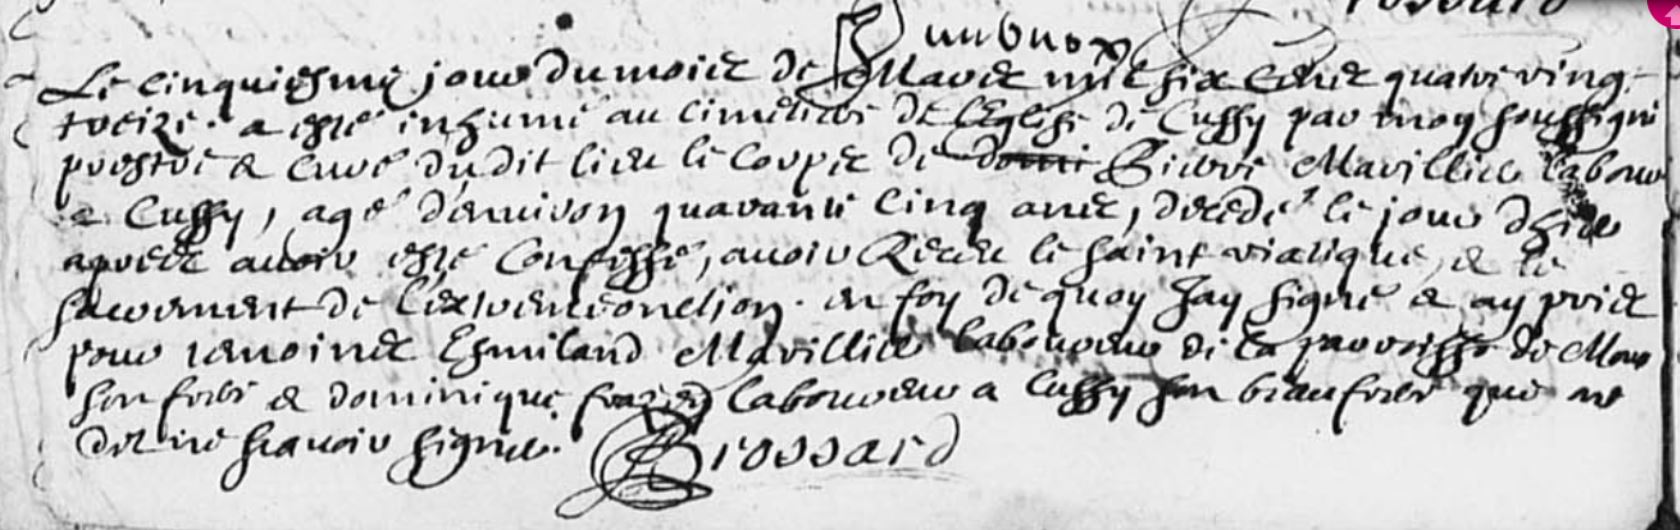 Le cinquiesme jour du mois de Mars mil six cens quatre ving
treize. a esté inhumé au cimetiere de l'Eglise de Cussy par moy soussigné
prestre & curé dudit lieu le corps de Pierre Mavillier labour
a Cussy, agé d'environ quarante cinq ans, decedé le jour d'hier
apres avoir esté Confessé, avoir Receu le saint viatique, & le
sacrement de l'extremeonction. en foy de quoy Jay signé & ay pries
pour temoines Esmiland Mavillier laboureur de la parroisse de
son frere & dominique laboureur a Cussy son beaufrere qui ne
dit ne scavoir signer. Brossard